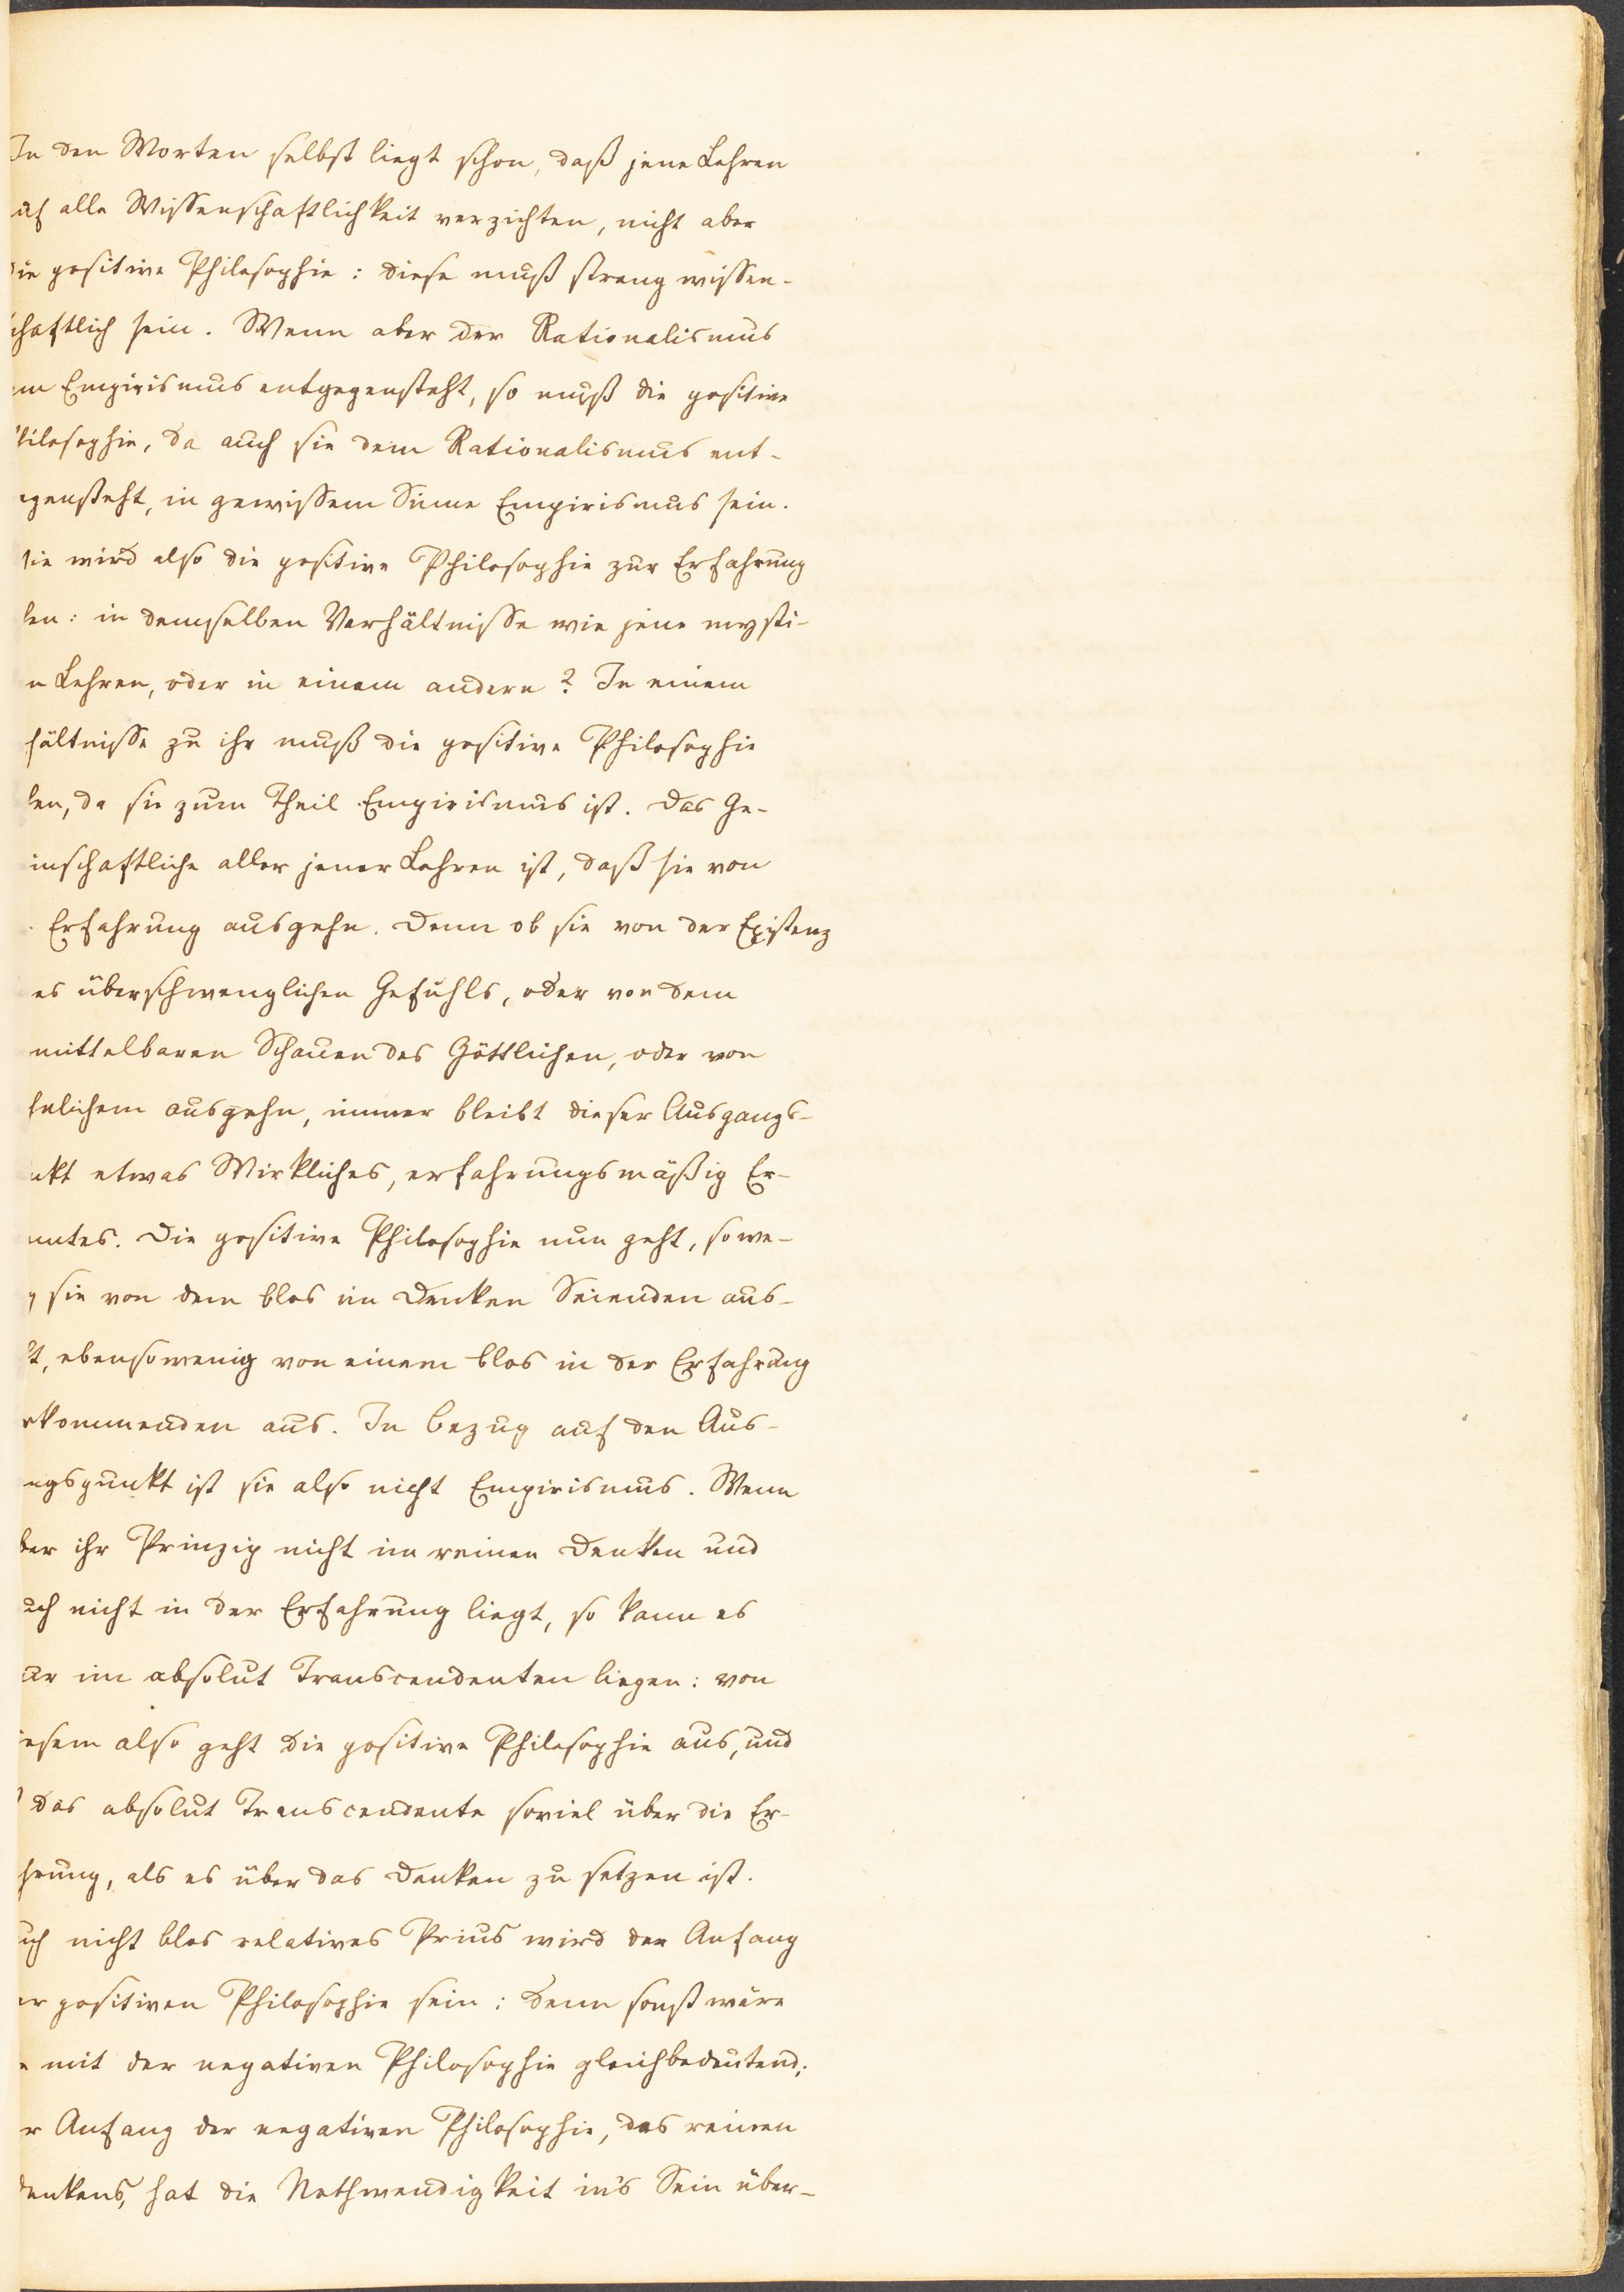 In den Worten selbst liegt schon, daß jene Lehren
auf alle Wissenschaftlichkeit verzichten, nicht aber
die positive Philosophie: diese muß streng wissen-
schaftlich sein. Wenn aber der Rationalismus
em Empirismus entgegensteht, so muß die positive
hilosophie, da auch sie dem Rationalismus ent-
egensteht, in gewissem Sinne Empirismus sein.
ie wird also die positive Philosophie zur Erfahrung
hen: in demselben Verhältnisse wie jene mysti-
n Lehren, oder in einem andern? In einem
hältnisse zu ihr muß die positive Philosophie
hen, da sie zum Theil Empirismus ist. Das Ge-
inschaftliche aller jener Lehren ist, daß sie von
Erfahrung ausgehn. Denn ob sie von der Existenz
es überschwenglichen Gefühls, oder von dem
mittelbaren Schauen des Göttlichen, oder von
hnlichem ausgehn, immer bleibt dieser Ausgangs-
nkt etwas Wirkliches, erfahrungsmäßig Er-
nntes. Die positive Philosophie nun geht, sowe-
g sie von dem blos im Denken Seienden aus-
ht, ebensowenig von einem blos in der Erfahrung
rkommenden aus. In bezug auf den Aus-
ngspunkt ist sie also nicht Empirismus. Wenn
ber ihr Prinzip nicht im reinen Denken und
uch nicht in der Erfahrung liegt, so kann es
ur im absolut Transcendenten liegen: von
iesem also geht die positive Philosophie aus, und
das absolut Transcendente soviel über die Er-
hrung, als es über das Denken zu setzen ist.
uch nicht blos relatives Prius wird der Anfang
er positiven Philosophie sein: denn sonst wäre
e mit der negativen Philosophie gleichbedeutend;
r Anfang der negativen Philosophie, des reinen
Denkens, hat die Nothwendigkeit in's Sein über-